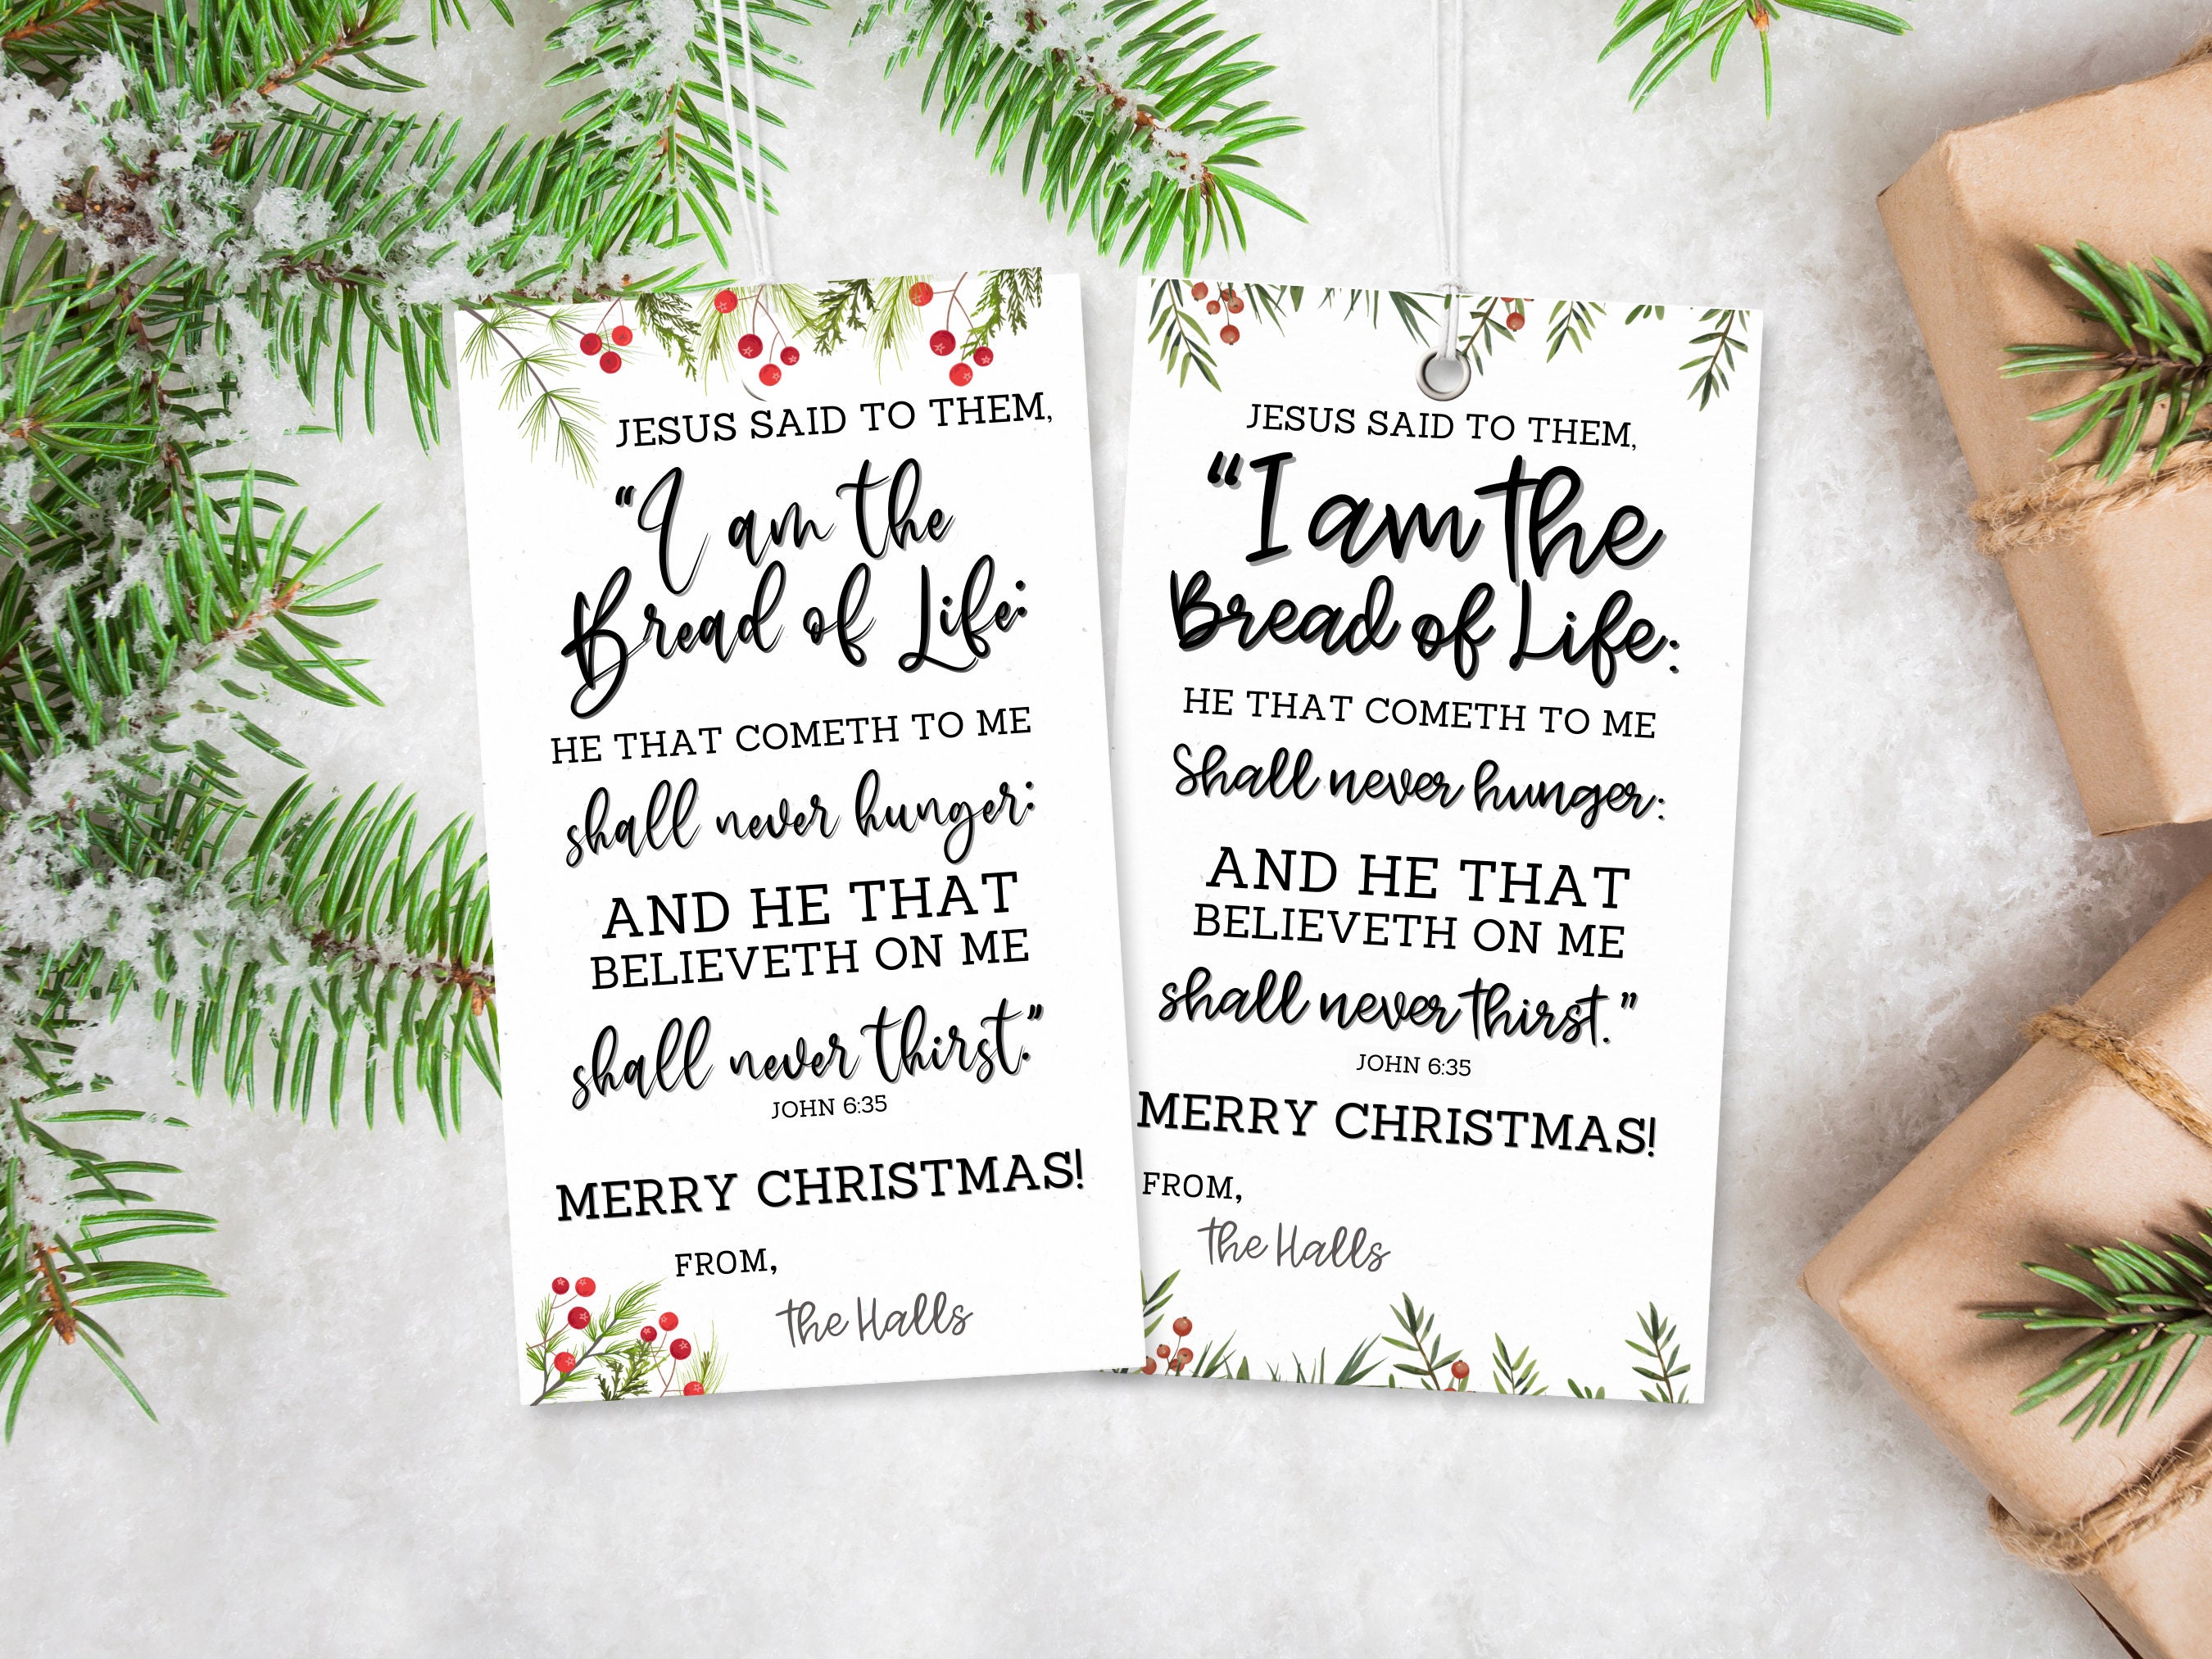 JESUS SAID TO THEM,
"I am the
Bread of Life:
HE THAT COMETH TO ME
shall never hunger:
AND HE THAT
BELIEVETH ON ME
shall never thirst."
JOHN 6:35
MERRY CHRISTMAS!
FROM,
the Halls
JESUS SAID TO THEM,
"I am the
Bread of Life:
HE THAT COMETH TO ME
Shall never hunger:
AND HE THAT
BELIEVETH ON ME
shall never thirst."
JOHN 6:35
MERRY CHRISTMAS!
FROM,
the Halls